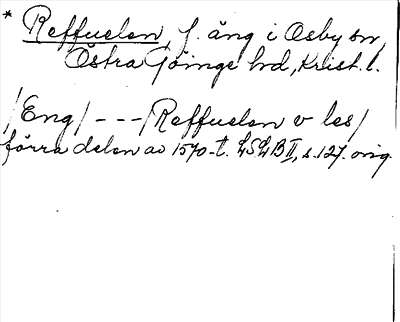 * Reffuelsn, f. äng i Osby sn,
Östra Göinge hd, Krist. l.
/Eng/ - - - /Reffuelsn v les/
förra delen av 1570-t. LSLB II, s. 127. orig.